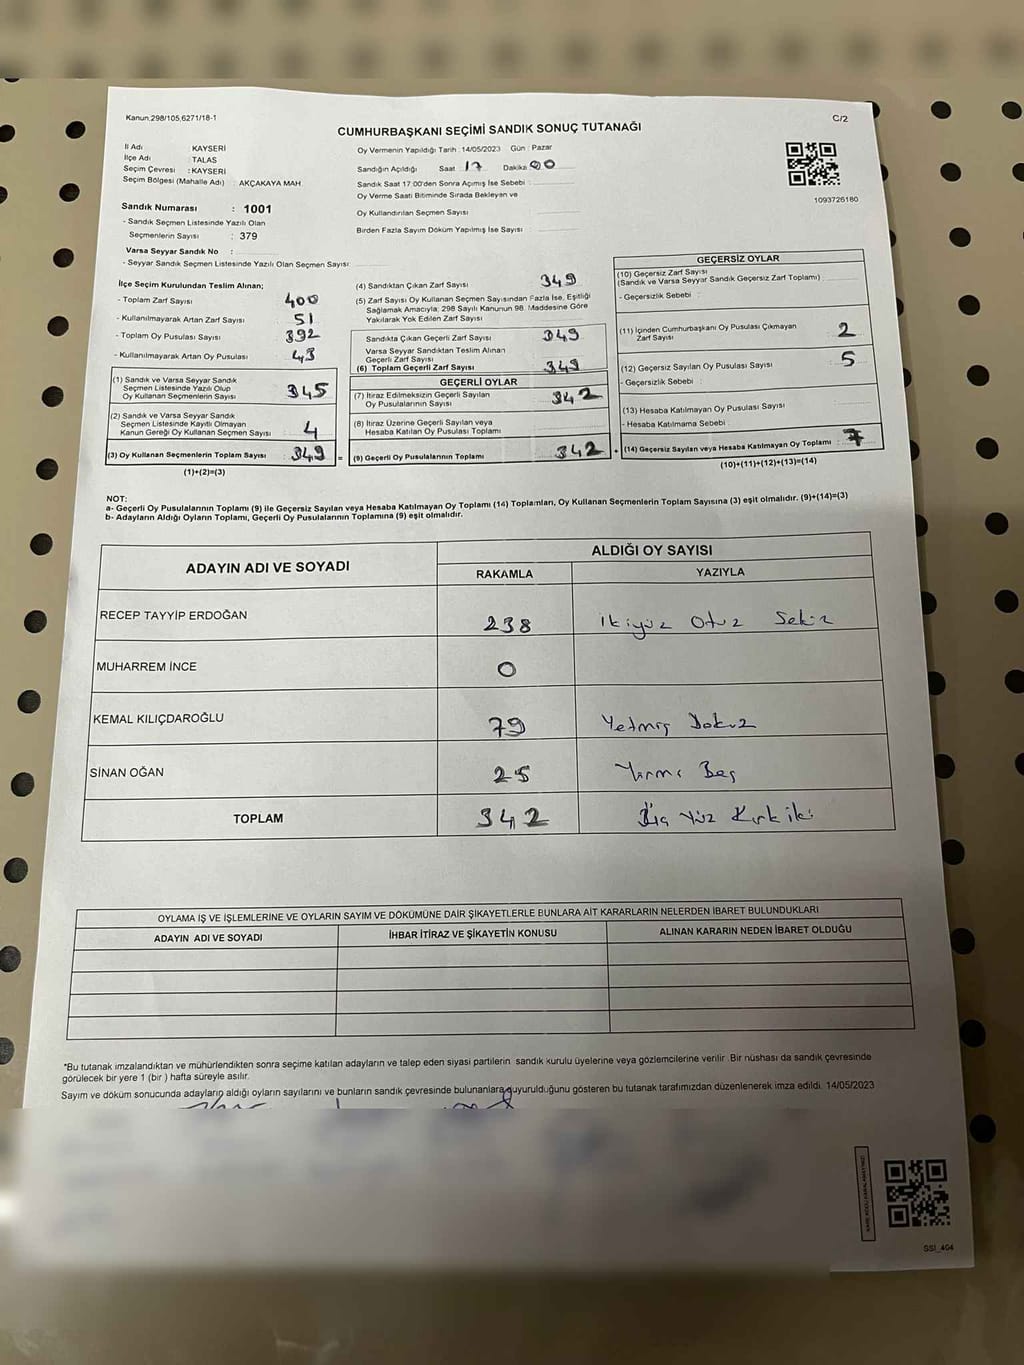 Kanun:298/105,6271/18-1
C/2
CUMHURBAŞKANI SEÇİMİ SANDIK SONUÇ TUTANAĞI
İl Adı : KAYSERİ
İlçe Adı : TALAS
Seçim Çevresi : KAYSERİ
Seçim Bölgesi (Mahalle Adı) : AKÇAKAYA MAH.
Sandık Numarası : 1001
- Sandık Seçmen Listesinde Yazılı Olan
Seçmenlerin Sayısı : 379
Varsa Seyyar Sandık No :
- Seyyar Sandık Seçmen Listesinde Yazılı Olan Seçmen Sayısı:
Oy Vermenin Yapıldığı Tarih : 14/05/2023 Gün : Pazar
Sandığın Açıldığı Saat : 17 Dakika 00
Sandık Saat 17.00'den Sonra Açımış İse Sebebi :
Oy Verme Saati Bitiminde Sırada Bekleyan ve
Oy Kullandırılan Seçmen Sayısı
Birden Fazla Sayım Döküm Yapılmış İse Sayısı :
1093726180
İlçe Seçim Kurulundan Teslim Alınan;
- Toplam Zarf Sayısı : 400
- Kullanılmayarak Artan Zarf Sayısı : 51
- Toplam Oy Pusulası Sayısı : 392
- Kullanılmayarak Artan Oy Pusulası : 43
(1) Sandık ve Varsa Seyyar Sandık
Seçmen Listesinde Yazılı Olup
Oy Kullanan Seçmenlerin Sayısı : 345
(2) Sandık ve Varsa Seyyar Sandık
Seçmen Listesinde Kayıtlı Olmayan
Kanun Gereği Oy Kullanan Seçmen Sayısı : 4
(3) Oy Kullanan Seçmenlerin Toplam Sayısı : 349
(1)+(2)=(3)
(4) Sandıktan Çıkan Zarf Sayısı 349
(5) Zarf Sayısı Oy Kullanan Seçmen Sayısından Fazla İse, Eşitliği
Sağlamak Amacıyla; 298 Sayılı Kanunun 98. Maddesine Göre
Yakılarak Yok Edilen Zarf Sayısı
Sandıkta Çıkan Geçerli Zarf Sayısı 349
Varsa Seyyar Sandıktan Teslim Alınan
Geçerli Zarf Sayısı
(6) Toplam Geçerli Zarf Sayısı 349
GEÇERLİ OYLAR
(7) İtiraz Edilmeksizin Geçerli Sayılan
Oy Pusulalarının Sayısı 342
(8) İtiraz Üzerine Geçerli Sayılan veya
Hesaba Katılan Oy Pusulası Toplamı
= (9) Geçerli Oy Pusulalarının Toplamı 342
GEÇERSİZ OYLAR
(10) Geçersiz Zarf Sayısı
(Sandık ve Varsa Seyyar Sandık Geçersiz Zarf Toplamı) :
- Geçersizlik Sebebi :
(11) İçinden Cumhurbaşkanı Oy Pusulası Çıkmayan
Zarf Sayısı 2
(12) Geçersiz Sayılan Oy Pusulası Sayısı : 5
- Geçersizlik Sebebi :
(13) Hesaba Katılmayan Oy Pusulası Sayısı
- Hesaba Katılmama Sebebi :
+ (14) Geçersiz Sayılan veya Hesaba Katılmayan Oy Toplamı : 7
(10)+(11)+(12)+(13)=(14)
NOT:
a- Geçerli Oy Pusulalarının Toplamı (9) ile Geçersiz Sayılan veya Hesaba Katılmayan Oy Toplamı (14) Toplamları, Oy Kullanan Seçmenlerin Toplam Sayısına (3) eşit olmalıdır. (9)+(14)=(3)
b- Adayların Aldığı Oyların Toplamı, Geçerli Oy Pusulalarının Toplamına (9) eşit olmalıdır.
ADAYIN ADI VE SOYADI
ALDIĞI OY SAYISI
RAKAMLA YAZIYLA
RECEP TAYYİP ERDOĞAN 238 ikiyüz Otuz Sekiz
MUHARREM İNCE 0
KEMAL KILIÇDAROĞLU 79 Yetmiş Dokuz
SİNAN OĞAN 25 Yirmi Beş
TOPLAM 342 Üç Yüz Kırk iki
OYLAMA İŞ VE İŞLEMLERİNE VE OYLARIN SAYIM VE DÖKÜMÜNE DAİR ŞİKAYETLERLE BUNLARA AİT KARARLARIN NELERDEN İBARET BULUNDUKLARI
ADAYIN ADI VE SOYADI İHBAR İTİRAZ VE ŞİKAYETİN KONUSU ALINAN KARARIN NEDEN İBARET OLDUĞU
*Bu tutanak imzalandıktan ve mühürlendikten sonra seçime katılan adayların ve talep eden siyasi partilerin sandık kurulu üyelerine veya gözlemcilerine verilir. Bir nüshası da sandık çevresinde
görülecek bir yere 1 (bir ) hafta süreyle asılır.
Sayım ve döküm sonucunda adayların aldığı oyların sayılarını ve bunların sandık çevresinde bulunanlara duyurulduğunu gösteren bu tutanak tarafımızdan düzenlenerek imza edildi. 14/05/2023
SSI_404